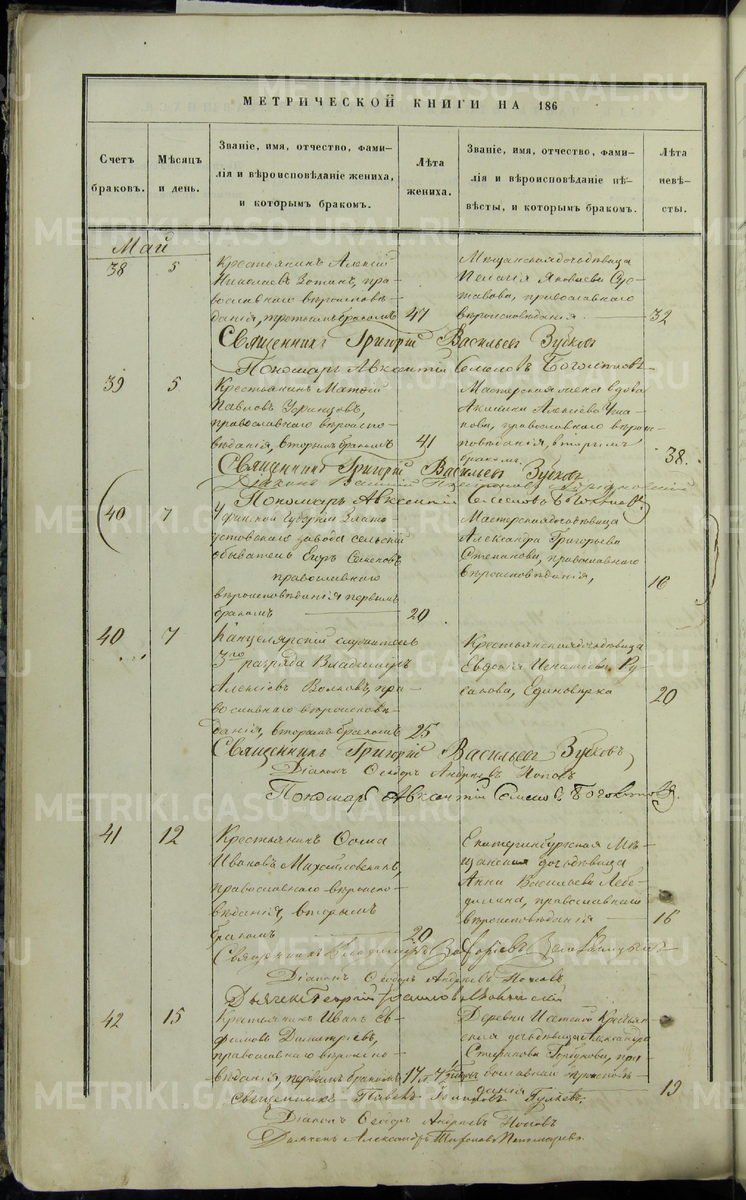 МЕТРИЧЕСКОЙ КНИГИ НА 186
Счетъ браковъ.
Мѣсяцъ и день.
Званіе, имя, отчество, фами-
лія и вѣроисповѣданіе жениха,
и которымъ бракомъ.
Лѣта жениха.
Званіе, имя, отчество, фами-
лія и вѣроисповѣданіе не-
вѣсты, и которымъ бракомъ.
Лѣта невѣ-
сты.
Май
38 5
Крестьянинъ Алексій
Николаевъ Зотинъ, пра-
вославнаго вѣроисповѣ-
данія, третьимъ бракомъ 47
Мѣщанская дочь дѣвица
Пелагія Яковлева
православнаго
вѣроисповѣданія 32
Священникъ Григорій Васильевъ Зубковъ
Пономарь Авксентій Семеновъ
39 5
Крестьянинъ Матвѣй
Павловъ
православнаго вѣроиспо-
вѣданія, вторымъ бракомъ 41
Мастерская жена вдова
Алексѣева
православнаго вѣрои-
сповѣданія, вторымъ
бракомъ 38.
Священникъ Григорій Васильевъ Зубковъ
Діаконъ
Пономарь Авксентій Семеновъ
40 7
Уфимской Губерніи Злато-
устовскаго завода сельскій
обыватель Егоръ Семеновъ
православнаго
вѣроисповѣданія первымъ
бракомъ 20
Мастерская дочь дѣвица
Александра Григорьева
Степанова, православнаго
вѣроисповѣданія, 16
40 7
Канцелярскій служитель
3го разряда Владимиръ
Алексѣевъ Волковъ, пра-
вославнаго вѣроисповѣ-
данія, вторымъ бракомъ 25
Крестьянская дочь дѣвица
Евдокія Игнатіева Ру-
сакова, Единовѣрка 20
Священникъ Григорій Васильевъ Зубковъ
Діаконъ Ѳеодоръ Андреевъ Поповъ
Пономарь Авксентій Семеновъ
41 12
Крестьянинъ Ѳома
Ивановъ Михайловскихъ,
православнаго вѣроиспо-
вѣданія, вторымъ
бракомъ 20
Екатеринбургская Мѣ-
щанская дочь дѣвица
Анна Васильева Лебе-
дкина, православнаго
вѣроисповѣданія 16
Священникъ Владимиръ
Діаконъ Ѳеодоръ Андреевъ Поповъ
Дьячекъ Георгій
42 15
Крестьянинъ Иванъ Еѳ-
имовъ Димитріевъ,
православнаго вѣроиспо-
вѣданія, первымъ бракомъ 17 л.
Деревни Исетской Крестьян-
ская дочь дѣвица Александра
Стефанова Горбунова, пра-
вославнаго вѣроисповѣ-
данія 19
Священникъ Павелъ
Діаконъ Ѳеодоръ Андреевъ Поповъ
Дьячекъ Александръ Пономаревъ
METRIKI.GASO-URAL.RU